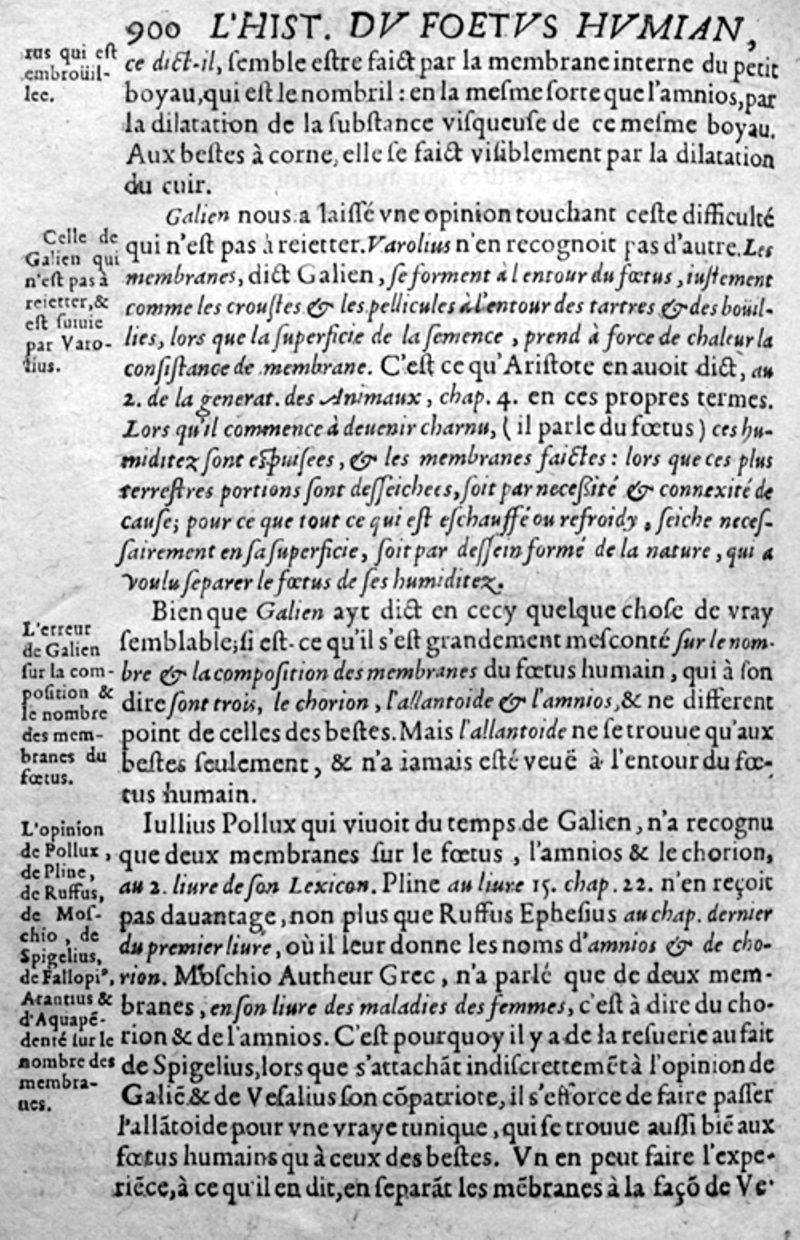 900 L'HIST. DV FOETVS HVMIAN,
rus qui est
embroüil-
lee.
ce dict-il, semble estre faict par la membrane interne du petit
boyau, qui est le nombril : en la mesme sorte que l'amnios, par
la dilatation de la substance visqueuse de ce mesme boyau.
Aux bestes à corne, elle se faict visiblement par la dilatation
du cuir.
Celle de
Galien qui
n'est pas à
reietter, &
est suiuie
par Varo-
lius.
Galien nous a laissé vne opinion touchant ceste difficulté
qui n'est pas à reietter. Varolius n'en recognoit pas d'autre. Les
membranes, dict Galien, se forment à l entour du fœtus, iustement
comme les croustes & les pellicules à l'entour des tartres & des boüil-
lies, lors que la superficie de la semence, prend à force de chaleur la
consistance de membrane. C'est ce qu'Aristote en auoit dict, au
2. de la generat. des Animaux, chap. 4. en ces propres termes.
Lors qu'il commence à deuenir charnu, ( il parle du fœtus ) ces hu-
miditez sont espuisees, & les membranes faictes : lors que ces plus
terrestres portions sont desseichees, soit par necessité & connexité de
cause; pour ce que tout ce qui est eschauffé ou refroidy, seiche neces-
sairement en sa superficie, soit par dessein formé de la nature, qui a
voulu separer le fœtus de ses humiditez.
L'erreur
de Galien
sur la com-
position &
le nombre
des mem-
branes du
fœtus.
Bien que Galien ayt dict en cecy quelque chose de vray
semblable; si est-ce qu'il s'est grandement mesconté sur le nom-
bre & la composition des membranes du fœtus humain, qui à son
dire sont trois, le chorion, l'allantoide & l'amnios, & ne different
point de celles des bestes. Mais l'allantoide ne se trouue qu'aux
bestes seulement, & n'a iamais esté veuë à l'entour du fœ-
tus humain.
L'opinion
de Pollux,
de Pline,
de Ruffus,
de Mos-
chio, de
Spigelius,
de Fallopi⁹,
Arantius &
d'Aquapē-
dente sur le
nombre des
membra-
nes.
Iullius Pollux qui viuoit du temps de Galien, n'a recognu
que deux membranes sur le fœtus, l'amnios & le chorion,
au 2. liure de son Lexicon. Pline au liure 15. chap. 22. n'en reçoit
pas dauantage, non plus que Ruffus Ephesius au chap. dernier
du premier liure, où il leur donne les noms d'amnios & de cho-
rion. Moschio Autheur Grec, n'a parlé que de deux mem-
branes, en son liure des maladies des femmes, c'est à dire du cho-
rion & de l'amnios. C'est pourquoy il y a de la resuerie au fait
de Spigelius, lors que s'attachāt indiscrettemēt à l'opinion de
Galiē & de Vesalius son cōpatriote, il s'efforce de faire passer
l'allātoide pour vne vraye tunique, qui se trouue aussi biē aux
fœtus humains qu à ceux des bestes. Vn en peut faire l'expe-
riēce, à ce qu'il en dit, en separāt les mēbranes à la façō de Ve-